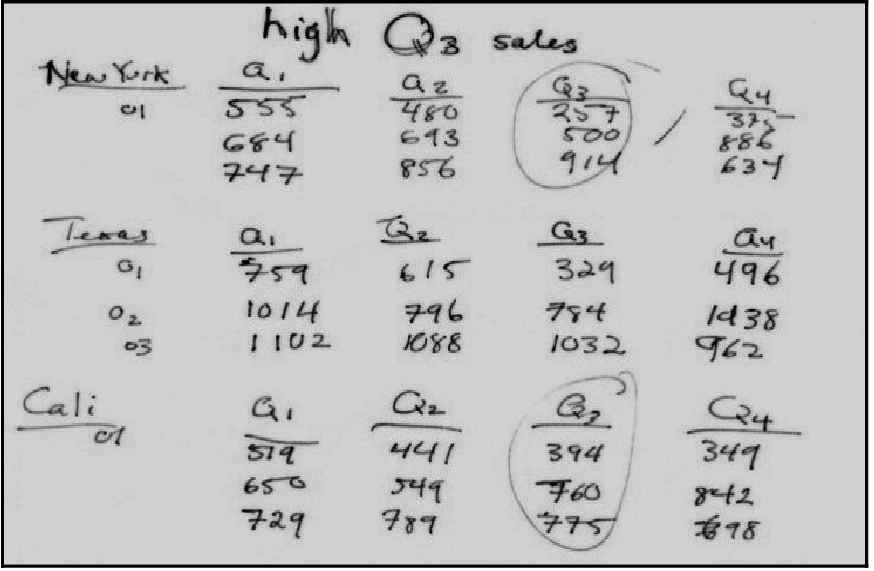 high Q3 sales
New York Q1 Q2 Q3 Q4
01 555 480 257 375
684 693 500 886
747 856 914 634
Texas Q1 Q2 Q3 Q4
01 759 615 329 496
02 1014 796 784 1038
03 1102 1088 1032 962
Cali Q1 Q2 Q3 Q4
01 519 441 394 349
650 549 760 842
729 789 775